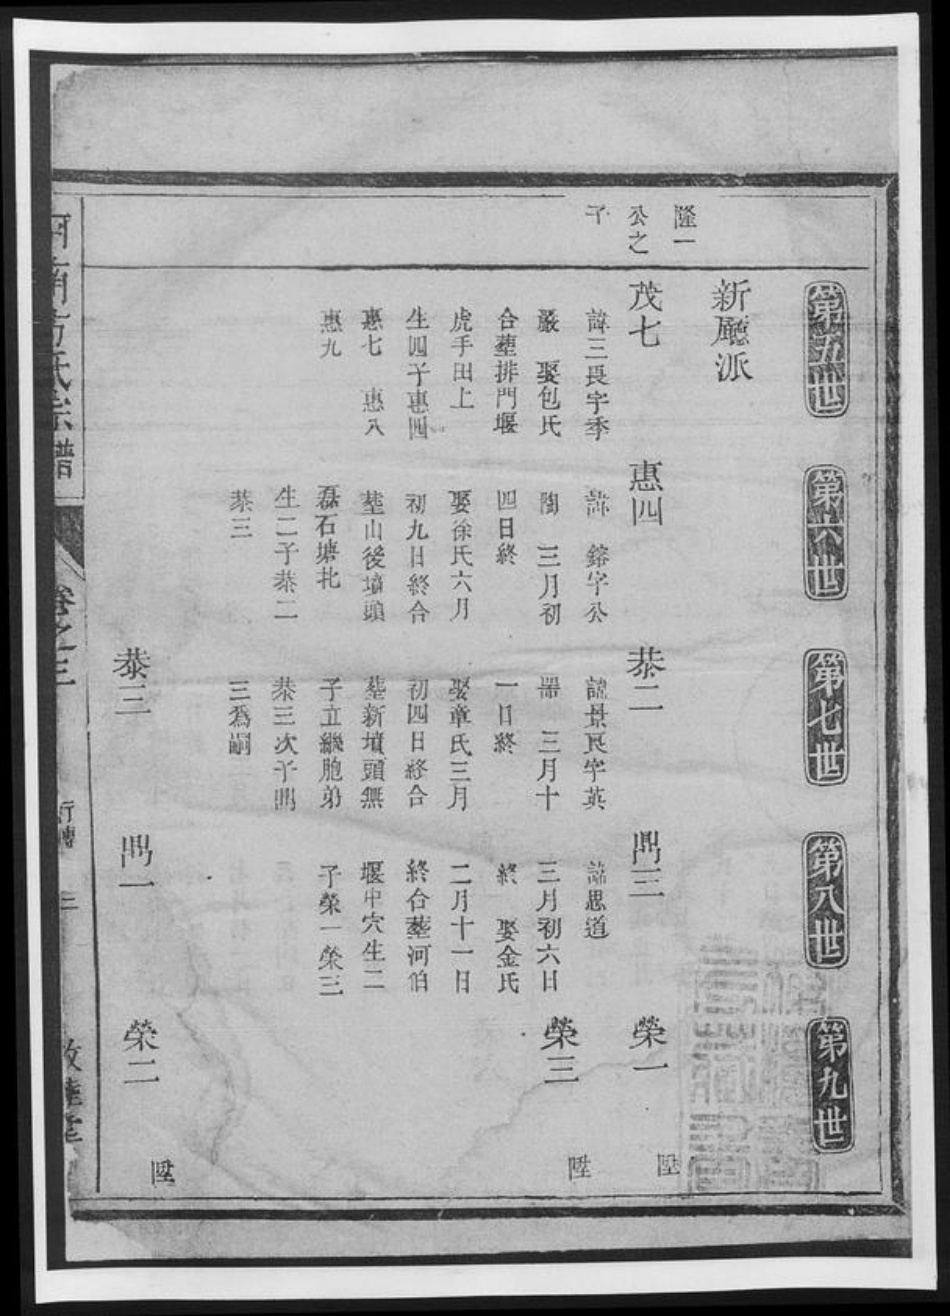 第五世
第六世
第七世
第八世
第九世
新廳派
隆一
公之
子
茂七
諱三畏字季
嚴 娶包氏
合塟排門堰
虎手田上
生四子惠四
惠七 惠八
惠九
惠四
諱 鎔字公
陶 三月初
四日終
娶徐氏六月
初九日終合
塟山後墳頭
磊石塘北
生二子恭二
恭三
恭二
諱景良字英
器 三月十
一日終
娶章氏三月
初四日終合
塟新墳頭無
子立繼胞弟
恭三次子鼎
三爲嗣
鼎三
諱思道
三月初六日
終 娶金氏
二月十一日
終合塟河伯
堰中穴生二
子榮一榮三
榮一
陞
榮三
陞
恭三
鼎一
榮二
陞
河南方氏宗譜
卷之三
行傳
三
敦睦堂